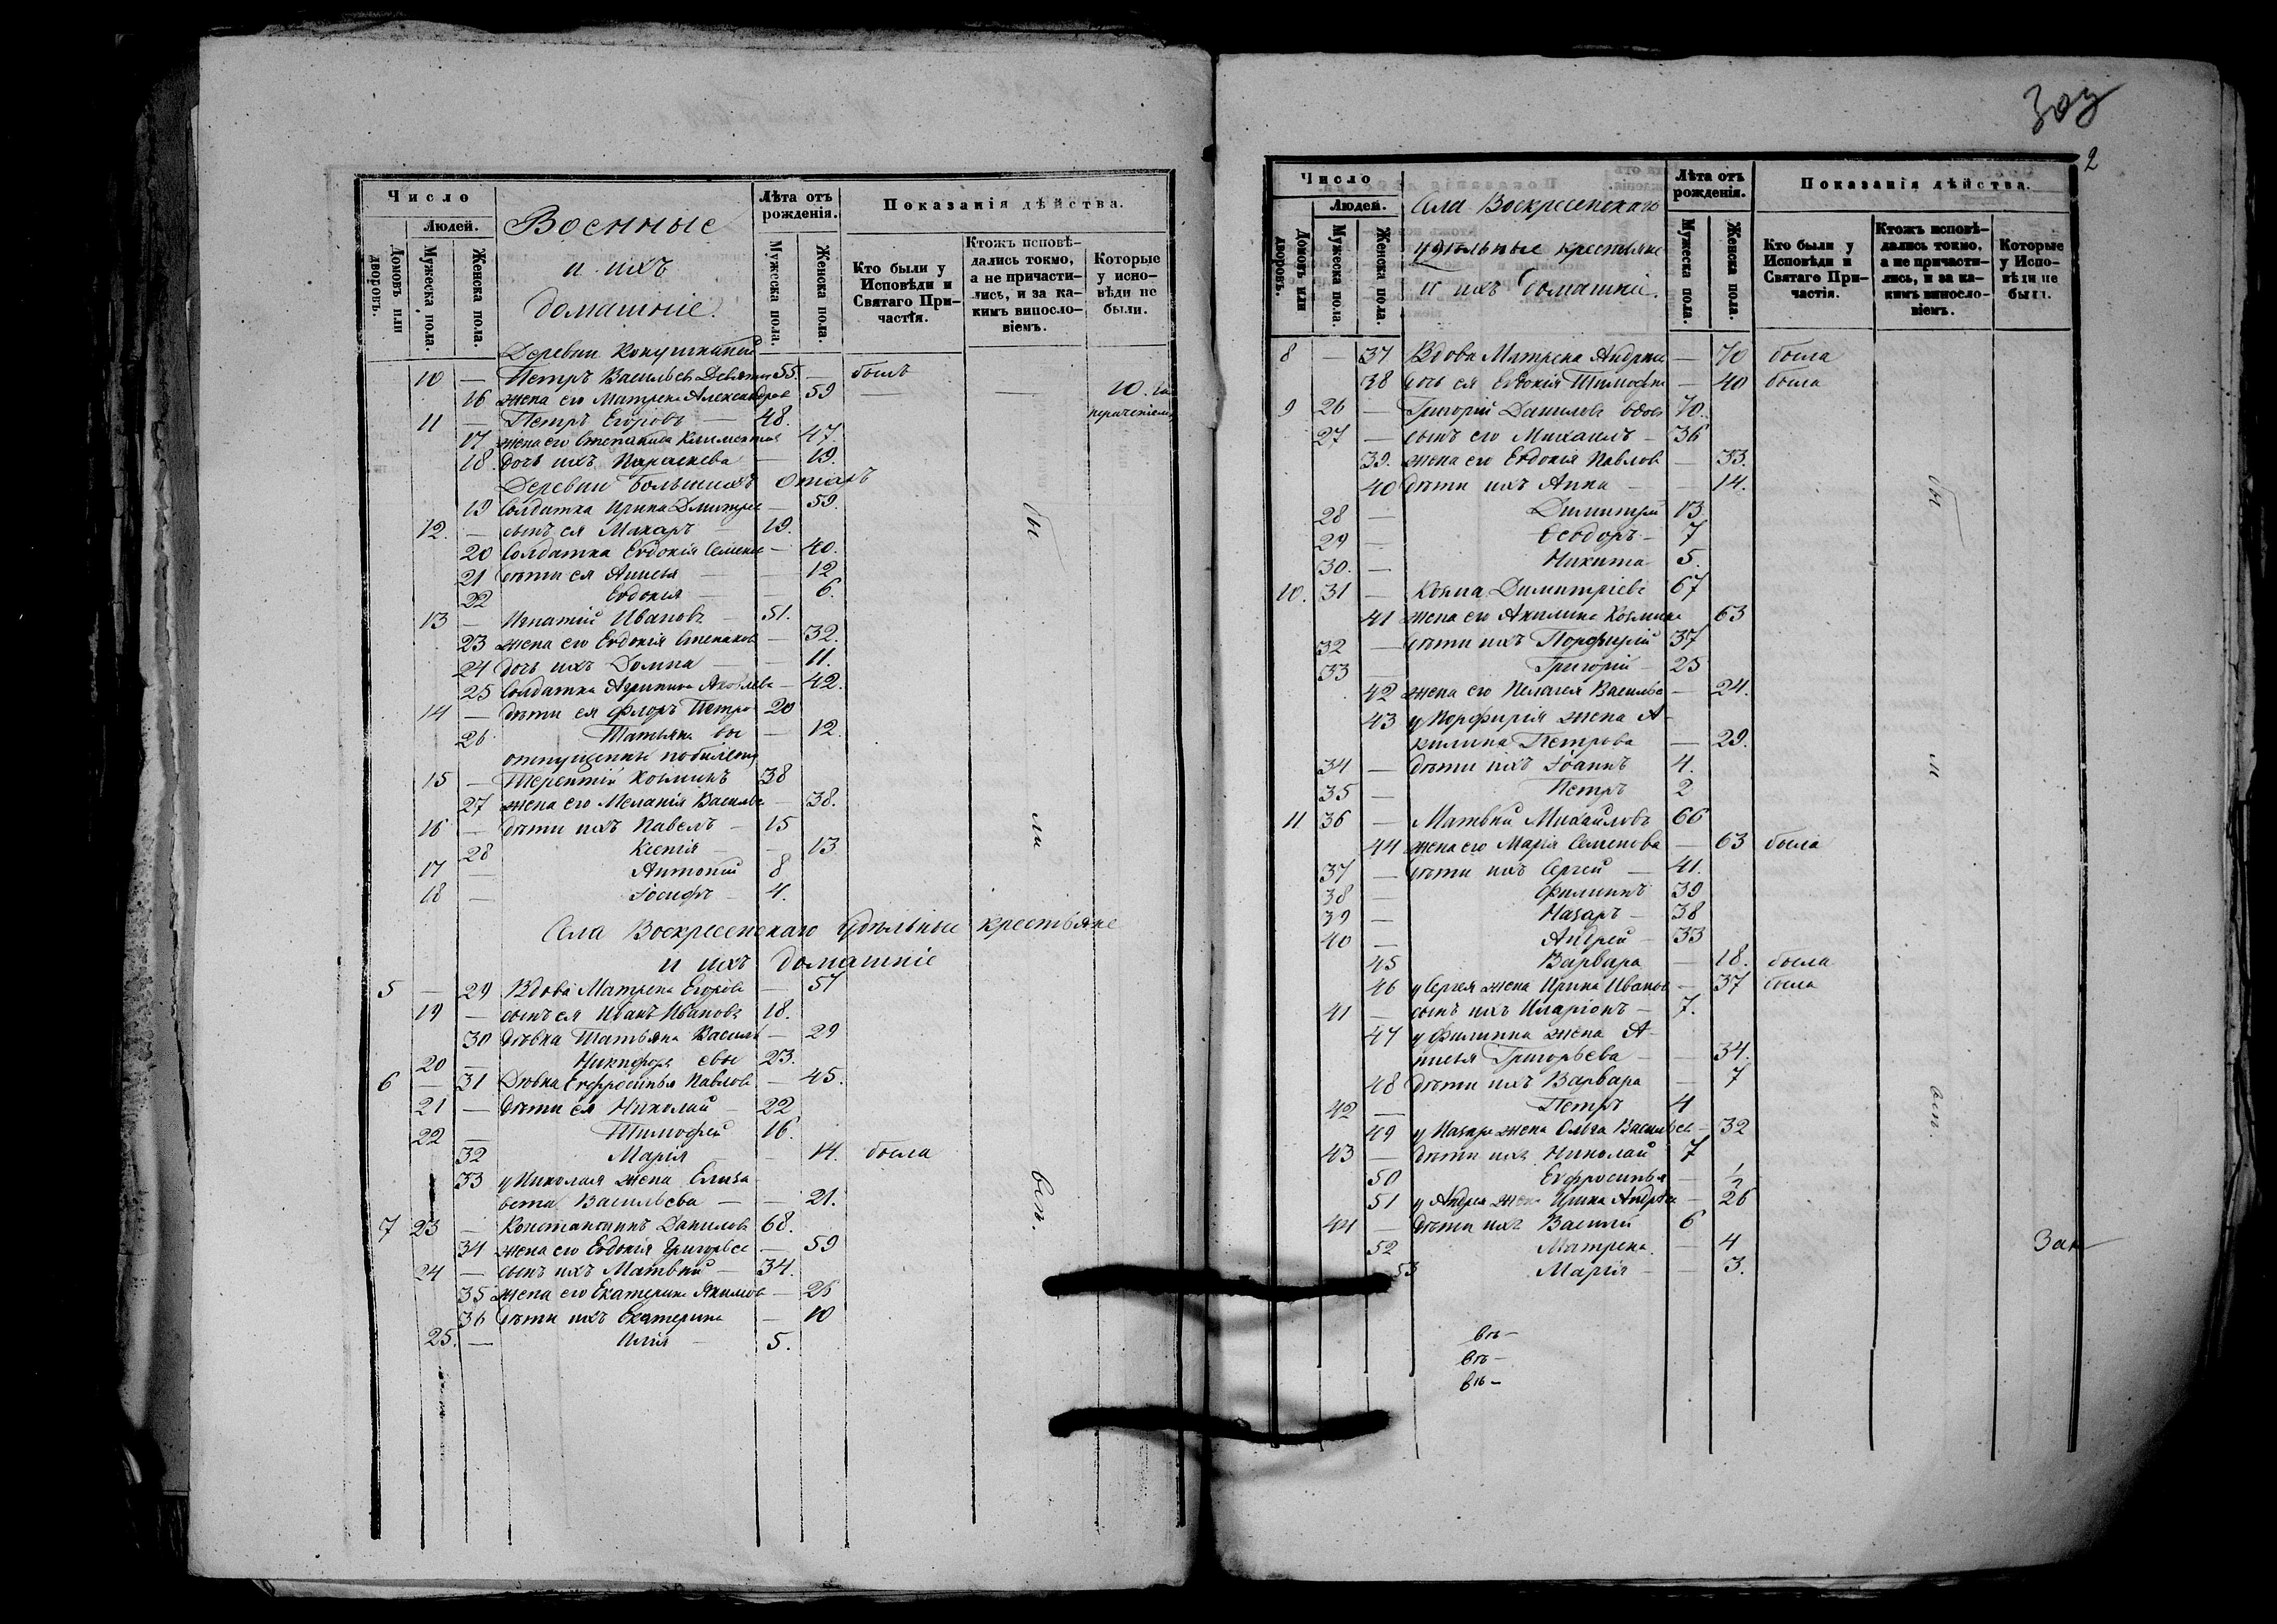 Число
Людей.
Домовъ или дворовъ.
Мужеска пола.
Женска пола.
Военные
и ихъ
домашніе.
Лѣта отъ рожденія.
Мужеска пола.
Женска пола.
Показанія дѣйства.
Кто были у Исповѣди и Святаго Причастія.
Ктожъ исповѣдались токмо, а не причастились, и за какимъ винословіемъ.
Которые у исповѣди не были.
Деревни
10 — Петръ Васильевъ 55. — былъ
16 жена его Матрена Александров 59 — — 10.
11 — Петръ Егоровъ — 48.
17 жена его Степанида Климентов 47.
18. дочь ихъ Параскева — 19.
Деревни Большихъ Отаръ
19 Солдатка Ирина Дмитрие — 59.
12. — сынъ ея Макаръ — 19.
20 Солдатка Евдокія Семено — 40.
21 дѣти ея Анисья — — 12
22 Евдокія — — 6.
13 — Игнатій Ивановъ — 51.
23 жена его Евдокія Степанов — 32.
24 дочь ихъ Домна — — 11.
25 Солдатка Агрипина Яковлева — 42.
14 — дѣти ея Флоръ Петро 20
26 Татьяна вы — 12.
отпущенные по билету
15 — Терентій Козминъ 38
27 жена его Меланія Василье — 38.
16 — дѣти ихъ Павелъ — 15
28 Ксенія — — 13
17 — Антоній 8
18 — Іосифъ — 4.
Села Воскресенскаго Удѣльные крестьяне
и ихъ домашніе
5 — 29 Вдова Матрена Егорова — 51
19 — сынъ ея Иванъ Ивановъ 18.
30 дѣвка Татьяна Василь — 29
20 — Никифоръ евы 23.
6 — 31 Дѣвка Евфросинья Павлова — 45.
21 — дѣти ея Николай — 22
22 — Тимофей 16.
32 Марія — — 14. была
33 у Николая жена Елиза
вета Васильева — — 21.
7 23 — Константинъ Данилов 68.
34 жена его Евдокія Григорье — 59
24 — сынъ ихъ Матвей — 34.
35 жена его Екатерина Якимов — 26
36 дѣти ихъ Екатерина — 10
25. — Илія — 5.
бы
ли
вси.
2
Число
Людей.
Домовъ или дворовъ.
Мужеска пола.
Женска пола.
Села Воскресенскаго
удѣльные крестьяне
и ихъ домашніе.
Лѣта отъ рожденія.
Мужеска пола.
Женска пола.
Показанія дѣйства.
Кто были у Исповѣди и Святаго Причастія.
Ктожъ исповѣдались токмо, а не причастились, и за какимъ винословіемъ.
Которые у Исповѣди не были.
8 — 37. Вдова Матрена Андреев — 70 была
38 дочь ея Евдокія Тимофее — 40 была
9 26 — Григорій Данилов вдов 70.
27 — сынъ его Михаилъ — 36
39. жена его Евдокія Павлов — 33.
40 дѣти ихъ Анна — — 14.
28 — Димитрій 13
29 — Ѳеодоръ — 7
30. — Никита 5.
10. 31 — Козма Димитріевъ 67
41 жена его Акилина Козмина 63
32 — дѣти ихъ Порфирій 37
33 Григорій — 25
42 жена его Пелагея Василье — 24.
43 у Порфирія жена А-
килина Петрова — 29.
34 — дѣти ихъ Іоаннъ 4.
35 — Петръ 2
11 36 — Матвей Михайловъ 66
44 жена его Марія Семенова — 63 была
37 — дѣти ихъ Сергей — 41.
38 — Филиппъ 39
39 — Назаръ — 38
40 — Андрей — 33
45 Варвара — 18. была
46 у Сергея жена Ирина Иванов — 37 была
41 — сынъ ихъ Иларіонъ — 7.
47 у Филиппа жена А-
нисья Григорьева — — 34.
48 дѣти ихъ Варвара — 7
42 — Петръ 4
49 у Назара жена Ольга Василье — 32
43 — дѣти ихъ Николай 7
50 Евфросинья — ½
51 у Андрея жена Ирина Андрее — 26
44 — дѣти ихъ Василій 6
52 Матрена — 4
53 Марія — — 3.
бы
ли
вси.